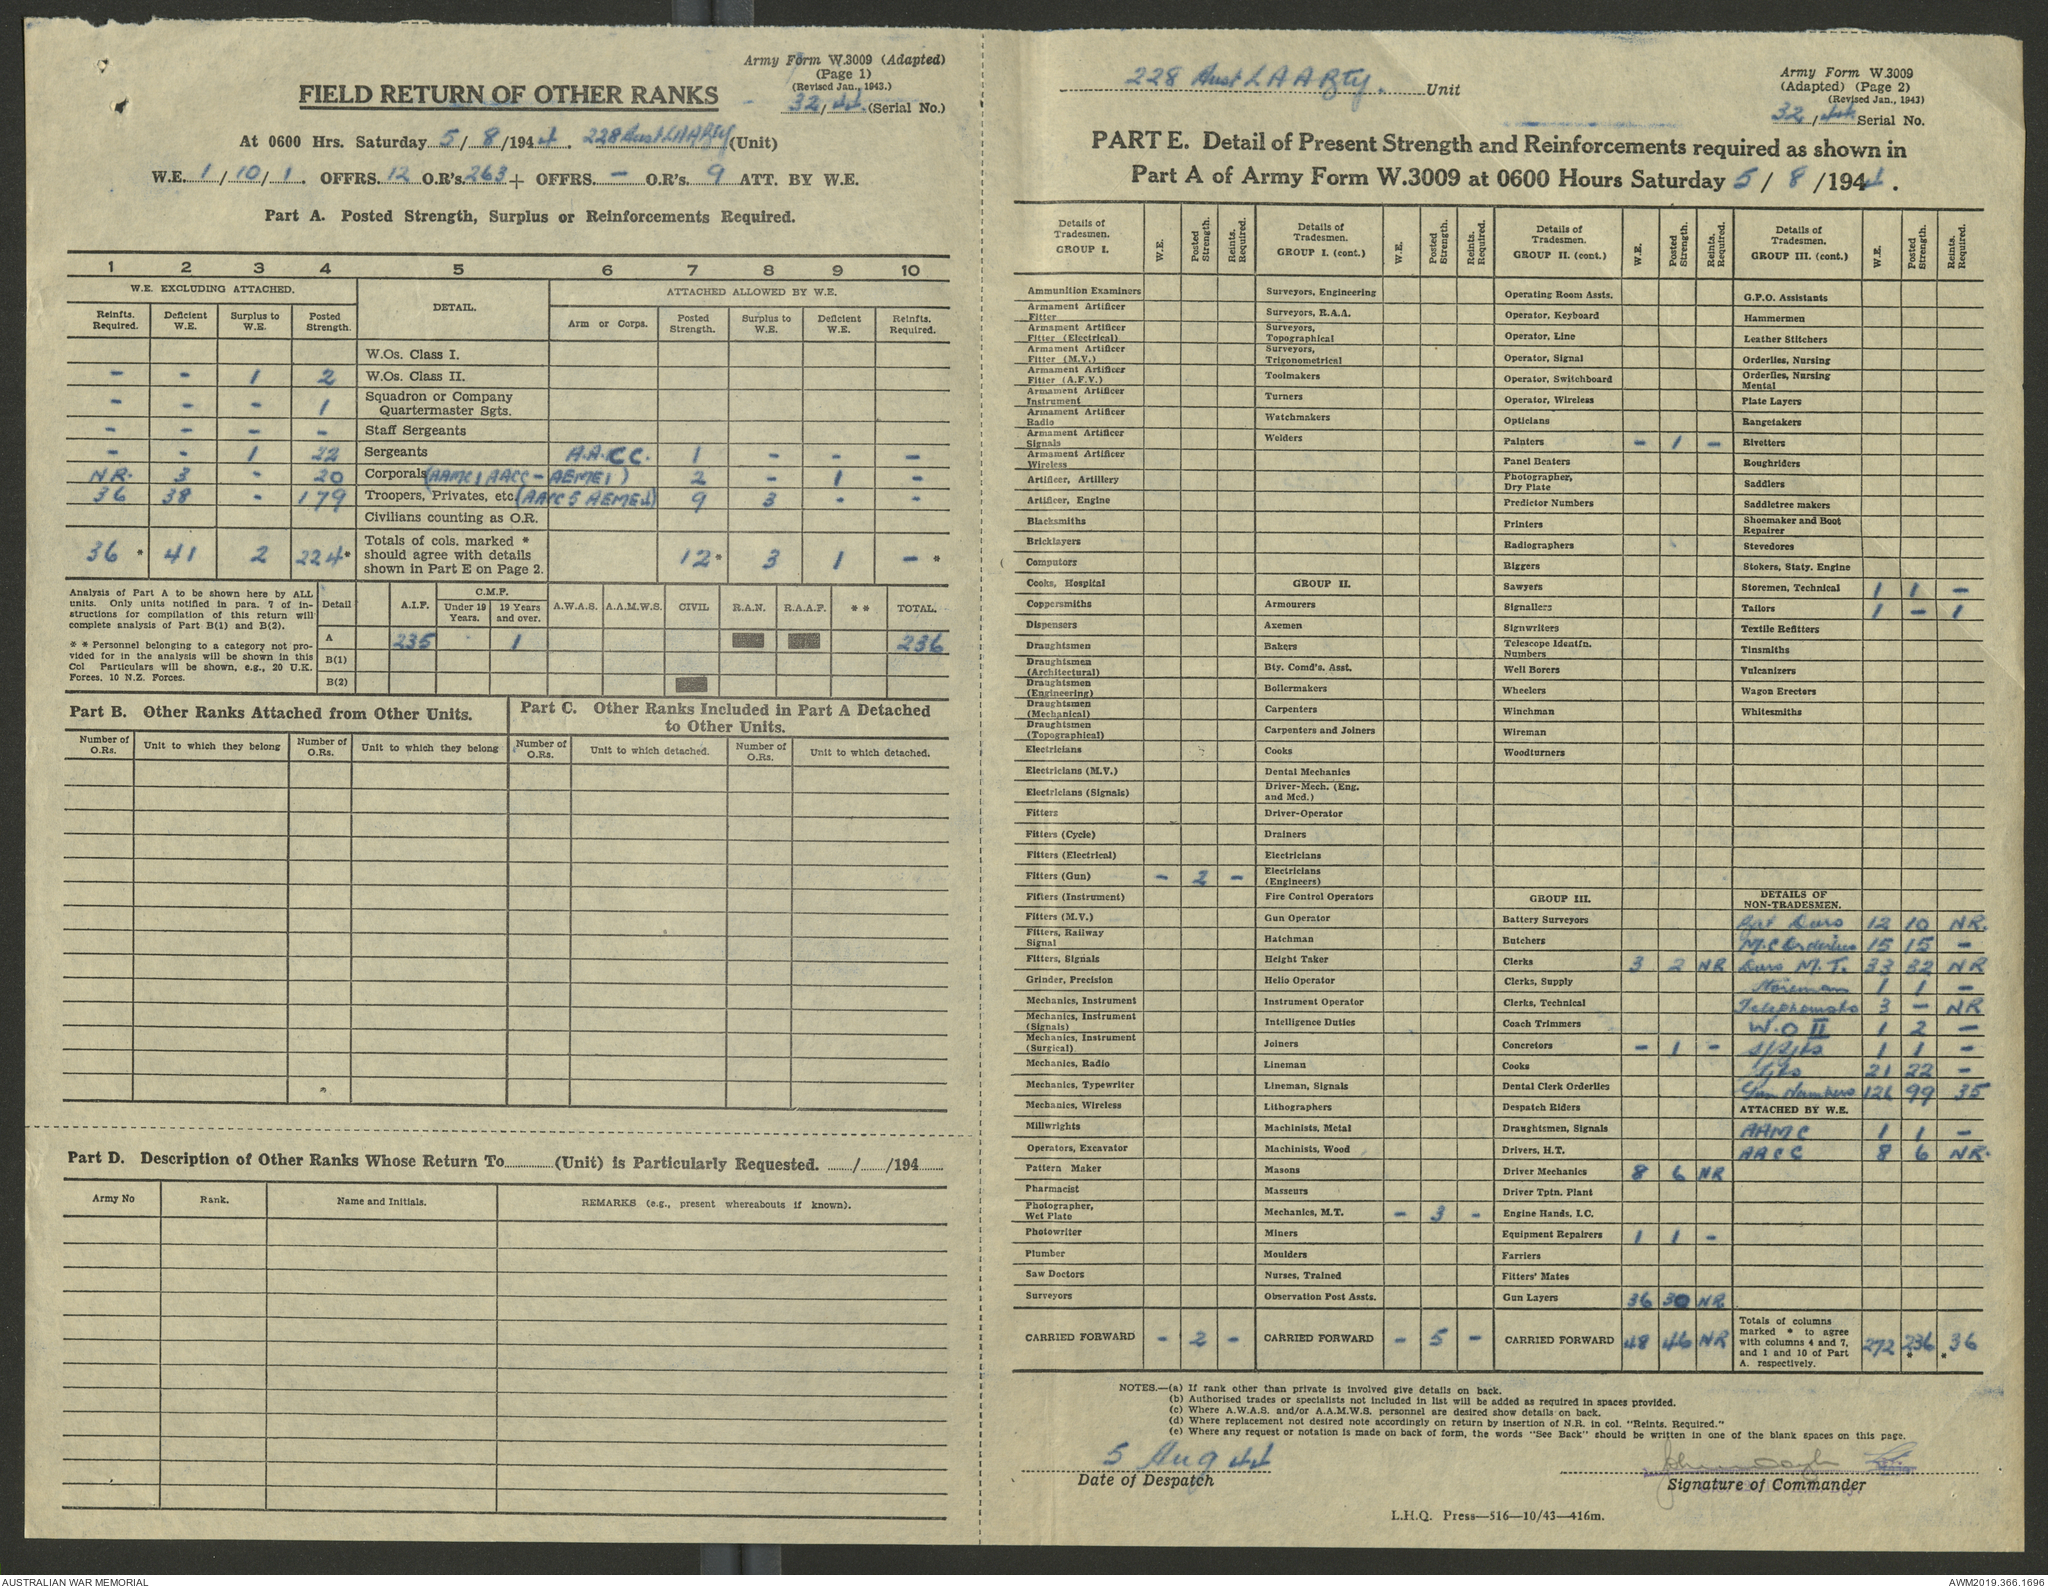 Army Form W.3009 (Adapted)
(Page 1)
(Revised Jan., 1943.)
32/44 (Serial No.)
FIELD RETURN OF OTHER RANKS
At 0600 Hrs. Saturday 5/8/1944. 228 Aust LAA Bty (Unit)
W.E. 1/10/1. OFFRS. 12 O.R's. 263 + OFFRS. - O.R's. 9 ATT. BY W.E.
Part A. Posted Strength, Surplus or Reinforcements Required.
1 2 3 4 5 6 7 8 9 10
W.E. EXCLUDING ATTACHED. DETAIL. ATTACHED ALLOWED BY W.E.
Reinfts. Required. Deficient W.E. Surplus to W.E. Posted Strength. Arm or Corps. Posted Strength. Surplus to W.E. Deficient W.E. Reinfts. Required.
W.Os. Class I.
- - 1 2 W.Os. Class II.
- - - 1 Squadron or Company Quartermaster Sgts.
- - - - Staff Sergeants
- - 1 22 Sergeants A.A.C.C. 1 - - -
NR. 3 - 20 Corporals (AAMC 1 AACC - AEME 1) 2 - 1 -
36 38 - 179 Troopers, Privates, etc. (AACC 5 AEME 4) 9 3 - -
Civilians counting as O.R.
36 * 41 2 224 * Totals of cols. marked * should agree with details shown in Part E on Page 2. 12 * 3 1 - *
Analysis of Part A to be shown here by ALL units. Only units notified in para. 7 of instructions for compilation of this return will complete analysis of Part B(1) and B(2).
* * Personnel belonging to a category not provided for in the analysis will be shown in this Col Particulars will be shown, e.g., 20 U.K. Forces, 10 N.Z. Forces.
Detail A.I.F. C.M.F. Under 19 Years. 19 Years and over. A.W.A.S. A.A.M.W.S. CIVIL R.A.N. R.A.A.F. * * TOTAL.
A 235 1 236
B(1)
B(2)
Part B. Other Ranks Attached from Other Units.
Number of O.Rs. Unit to which they belong Number of O.Rs. Unit to which they belong
Part C. Other Ranks Included in Part A Detached to Other Units.
Number of O.Rs. Unit to which detached. Number of O.Rs. Unit to which detached.
Part D. Description of Other Ranks Whose Return To............(Unit) is Particularly Requested. ....../....../194......
Army No Rank. Name and Initials. REMARKS (e.g., present whereabouts if known).
228 Aust LAA Bty. Unit
Army Form W.3009
(Adapted) (Page 2)
(Revised Jan., 1943)
32/44 Serial No.
PART E. Detail of Present Strength and Reinforcements required as shown in
Part A of Army Form W.3009 at 0600 Hours Saturday 5/8/1944.
Details of Tradesmen. GROUP I. W.E. Posted Strength. Reints. Required.
Ammunition Examiners
Armament Artificer Fitter
Armament Artificer Fitter (Electrical)
Armament Artificer Fitter (M.V.)
Armament Artificer Fitter (A.F.V.)
Armament Artificer Instrument
Armament Artificer Radio
Armament Artificer Signals
Armament Artificer Wireless
Artificer, Artillery
Artificer, Engine
Blacksmiths
Bricklayers
Computors
Cooks, Hospital
Coppersmiths
Dispensers
Draughtsmen
Draughtsmen (Architectural)
Draughtsmen (Engineering)
Draughtsmen (Mechanical)
Draughtsmen (Topographical)
Electricians
Electricians (M.V.)
Electricians (Signals)
Fitters
Fitters (Cycle)
Fitters (Electrical)
Fitters (Gun) - 2 -
Fitters (Instrument)
Fitters (M.V.)
Fitters, Railway Signal
Fitters, Signals
Grinder, Precision
Mechanics, Instrument
Mechanics, Instrument (Signals)
Mechanics, Instrument (Surgical)
Mechanics, Radio
Mechanics, Typewriter
Mechanics, Wireless
Millwrights
Operators, Excavator
Pattern Maker
Pharmacist
Photographer, Wet Plate
Photowriter
Plumber
Saw Doctors
Surveyors
CARRIED FORWARD - 2 -
Details of Tradesmen. GROUP I. (cont.) W.E. Posted Strength. Reints. Required.
Surveyors, Engineering
Surveyors, R.A.A.
Surveyors, Topographical
Surveyors, Trigonometrical
Toolmakers
Turners
Watchmakers
Welders
GROUP II.
Armourers
Axemen
Bakers
Bty. Comd's. Asst.
Boilermakers
Carpenters
Carpenters and Joiners
Cooks
Dental Mechanics
Driver-Mech. (Eng. and Med.)
Driver-Operator
Drainers
Electricians
Electricians (Engineers)
Fire Control Operators
Gun Operator
Hatchman
Height Taker
Helio Operator
Instrument Operator
Intelligence Duties
Joiners
Lineman
Lineman, Signals
Lithographers
Machinists, Metal
Machinists, Wood
Masons
Masseurs
Mechanics, M.T. - 3 -
Miners
Moulders
Nurses, Trained
Observation Post Assts.
CARRIED FORWARD - 5 -
Details of Tradesmen. GROUP II. (cont.) W.E. Posted Strength. Reints. Required.
Operating Room Assts.
Operator, Keyboard
Operator, Line
Operator, Signal
Operator, Switchboard
Operator, Wireless
Opticians
Painters - 1 -
Panel Beaters
Photographer, Dry Plate
Predictor Numbers
Printers
Radiographers
Riggers
Sawyers
Signallers
Signwriters
Telescope Identfn. Numbers
Well Borers
Wheelers
Winchman
Wireman
Woodturners
GROUP III.
Battery Surveyors
Butchers
Clerks 3 2 NR
Clerks, Supply
Clerks, Technical
Coach Trimmers
Concretors - 1 -
Cooks
Dental Clerk Orderlies
Despatch Riders
Draughtsmen, Signals
Drivers, H.T.
Driver Mechanics 8 6 NR
Driver Tptn. Plant
Engine Hands, I.C.
Equipment Repairers 1 1 -
Farriers
Fitters' Mates
Gun Layers 36 30 NR
CARRIED FORWARD 48 46 NR
Details of Tradesmen. GROUP III. (cont.) W.E. Posted Strength. Reints. Required.
G.P.O. Assistants
Hammermen
Leather Stitchers
Orderlies, Nursing
Orderlies, Nursing Mental
Plate Layers
Rangetakers
Rivetters
Roughriders
Saddlers
Saddletree makers
Shoemaker and Boot Repairer
Stevedores
Stokers, Staty. Engine
Storemen, Technical 1 1 -
Tailors 1 - 1
Textile Refitters
Tinsmiths
Vulcanizers
Wagon Erectors
Whitesmiths
DETAILS OF NON-TRADESMEN.
12 10 NR.
M.C Orderlies 15 15 -
Dvrs M.T. 33 32 NR
1 1 -
Telephonists 3 - NR
W.O II 1 2 -
S/Sgts 1 1 -
Sgts 21 22 -
Gun Numbers 126 99 35
ATTACHED BY W.E.
AAMC 1 1 -
AACC 8 6 NR.
Totals of columns marked * to agree with columns 4 and 7, and 1 and 10 of Part A. respectively. 272 236 * * 36
NOTES.—(a) If rank other than private is involved give details on back.
(b) Authorised trades or specialists not included in list will be added as required in spaces provided.
(c) Where A.W.A.S. and/or A.A.M.W.S. personnel are desired show details on back.
(d) Where replacement not desired note accordingly on return by insertion of N.R. in col. "Reints. Required."
(e) Where any request or notation is made on back of form, the words "See Back" should be written in one of the blank spaces on this page.
5 Aug 44
Date of Despatch
Signature of Commander
L.H.Q. Press—516—10/43—416m.
AUSTRALIAN WAR MEMORIAL
AWM2019.366.1696